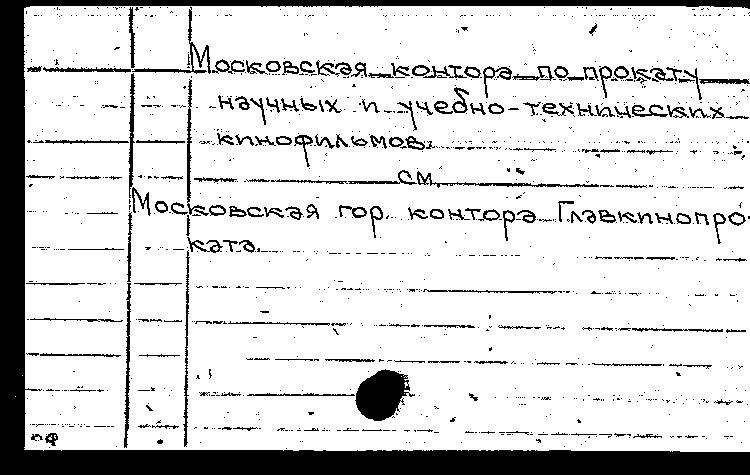 Московская контора по прокату
научных и учебно-технических
кинофильмов.
см.
Московская гор. контора Главкинопро-
ката.